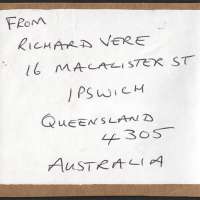 FROM
RICHARD VERE
16 MACALISTER ST
IPSWICH
QUEENSLAND
4305
AUSTRALIA